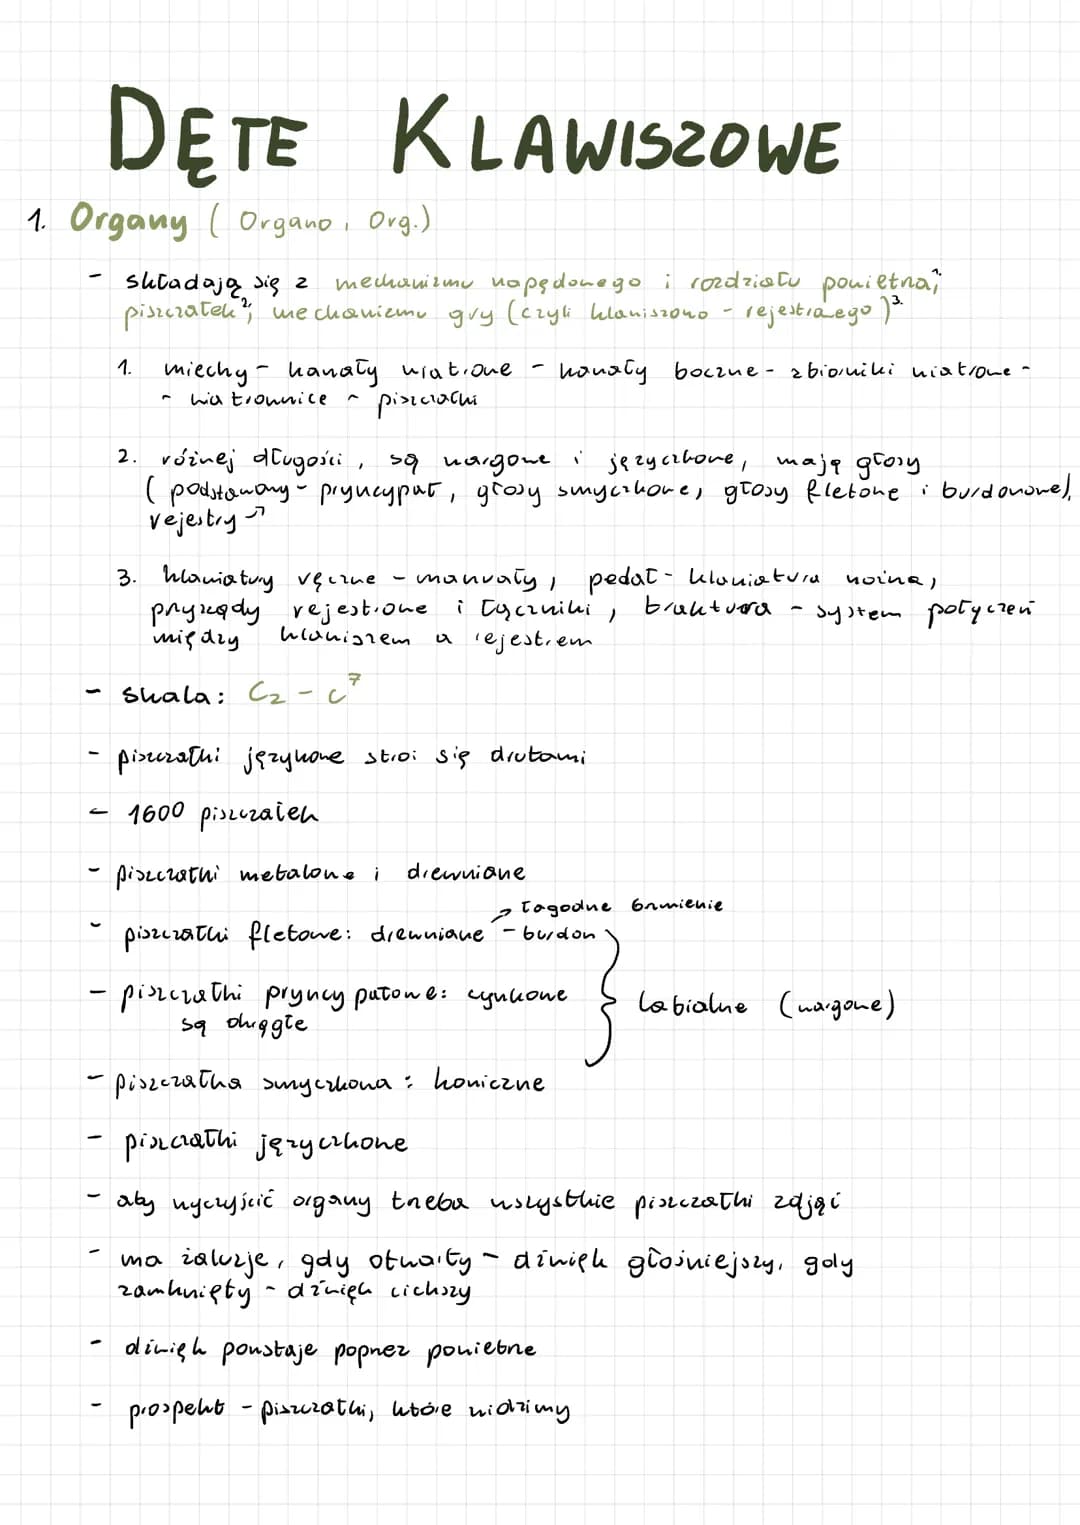 DĘTE KLAWISZOWE
1. Organy ( Organo, Org.)
- składają się z mechanizmu napędowego i rozdziału powietrza¹·,
piszczałek²·, mechanizmu gry (czyli klawiszowo - rejestrowego)³·
1. miechy - kanały wiatrowe - kanały boczne - zbiorniki wiatrowe -
- wiatrownice - piszczałki
2. różnej długości, są wargowe i języczkowe, mają głosy
( podstawowy - pryncypał, głosy smyczkowe, głosy fletowe i burdonowe),
rejestry ↗
3. klawiatury ręczne - manuały, pedał - klawiatura nożna,
przyrządy rejestrowe i łączniki, traktura - system połączeń
między klawiszem a rejestrem
- skala: C₂ - c⁷
- piszczałki językowe stroi się drutami
- 1600 piszczałek
- piszczałki metalowe i drewniane
→ łagodne brzmienie
- piszczałki fletowe: drewniane - burdon
- piszczałki pryncypałowe: cynkowe
są okrągłe
labialne (wargowe)
- piszczałka smyczkowa: koniczne
- piszczałki języczkowe
- aby wyczyścić organy trzeba wszystkie piszczałki zdjąć
- ma żaluzje, gdy otwarty - dźwięk głośniejszy, gdy
zamknięty - dźwięk cichszy
- dźwięk powstaje poprzez powietrze
- prospekt - piszczałki, które widzimy